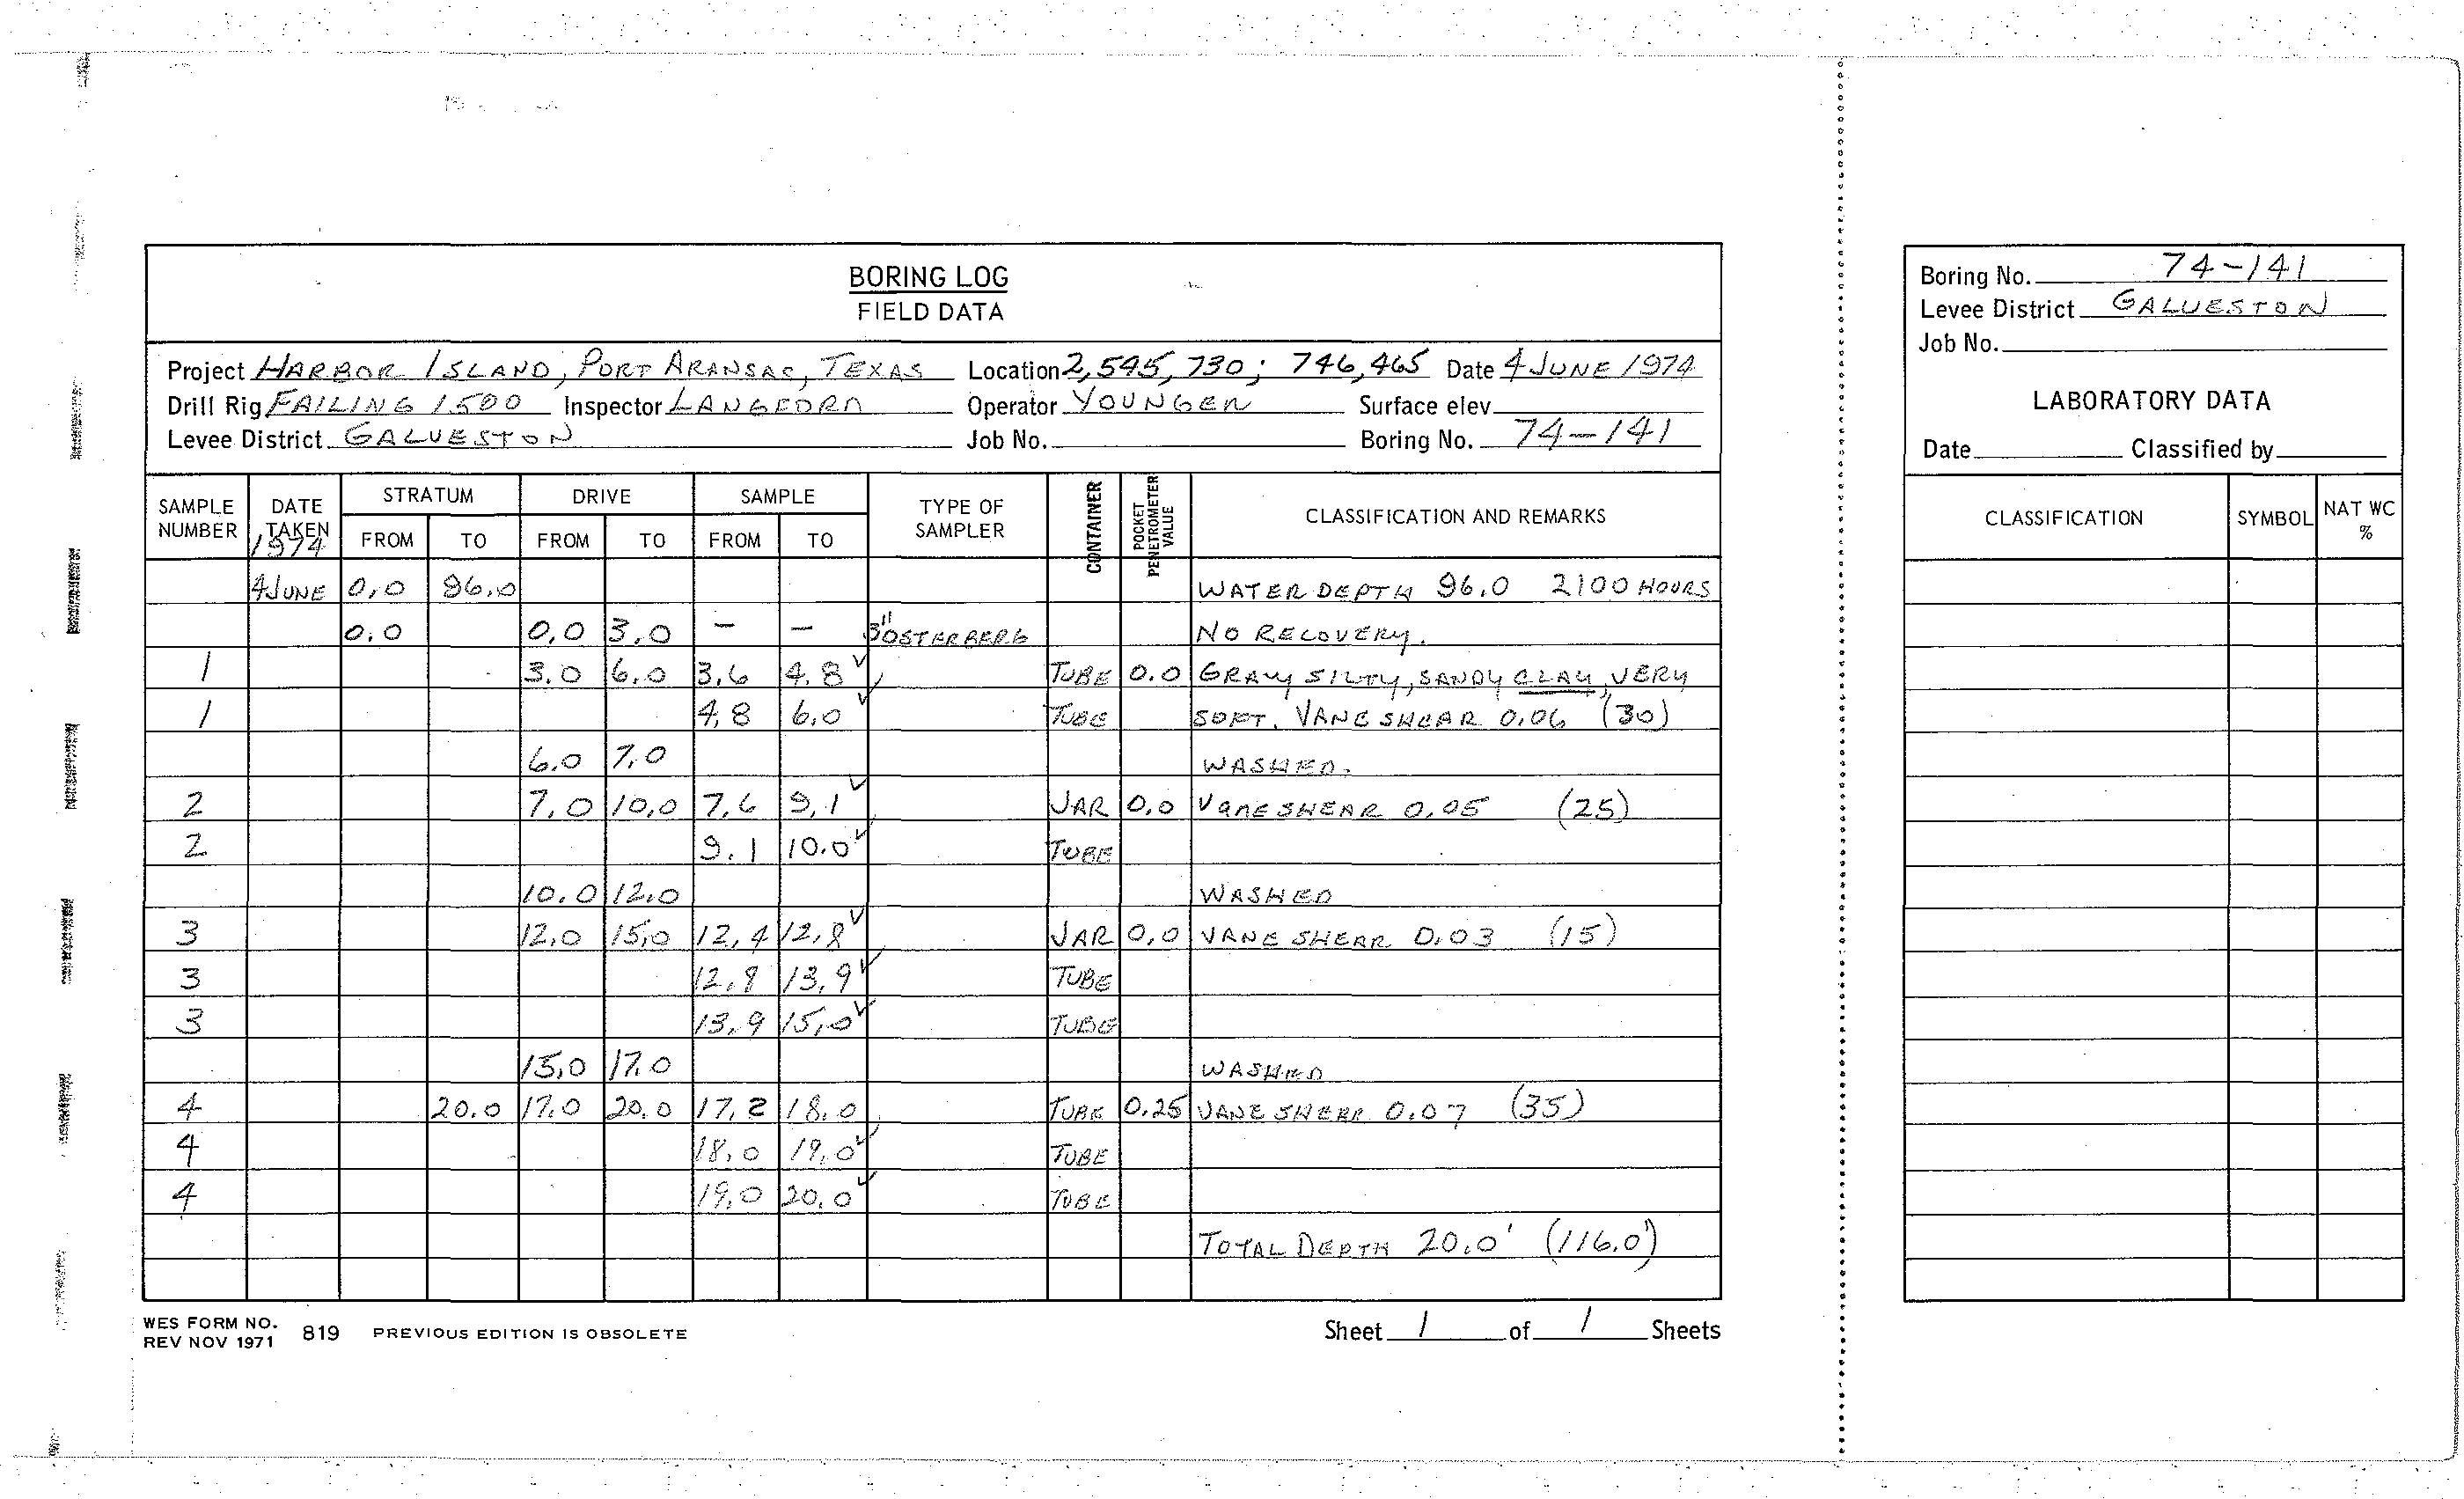 BORING LOG
FIELD DATA
Project HARBOR ISLAND, PORT ARANSAS, TEXAS Location 2,595,730; 746,465 Date 4 JUNE 1974
Drill Rig FAILING 1500 Inspector LANGFORD Operator YOUNGER Surface elev.
Levee District GALVESTON Job No. Boring No. 74-141
SAMPLE NUMBER DATE TAKEN 1974 STRATUM FROM TO DRIVE FROM TO SAMPLE FROM TO TYPE OF SAMPLER CONTAINER POCKET PENETROMETER VALUE CLASSIFICATION AND REMARKS
4 JUNE 0.0 96.0 WATER DEPTH 96.0 2100 HOURS
0.0 0.0 3.0 - - 3" OSTERBERG NO RECOVERY.
1 3.0 6.0 3.6 4.8 ✓ TUBE 0.0 GRAY SILTY, SANDY CLAY, VERY
1 4.8 6.0 ✓ TUBE SOFT. VANE SHEAR 0.06 (30)
6.0 7.0 WASHED.
2 7.0 10.0 7.6 9.1 ✓ JAR 0.0 VANE SHEAR 0.05 (25)
2 9.1 10.0 ✓ TUBE
10.0 12.0 WASHED
3 12.0 15.0 12.4 12.8 ✓ JAR 0.0 VANE SHEAR 0.03 (15)
3 12.8 13.9 ✓ TUBE
3 13.9 15.0 ✓ TUBE
15.0 17.0 WASHED
4 20.0 17.0 20.0 17.2 18.0 TUBE 0.25 VANE SHEAR 0.07 (35)
4 18.0 19.0 ✓ TUBE
4 19.0 20.0 ✓ TUBE
TOTAL DEPTH 20.0' (116.0')
WES FORM NO. 819 PREVIOUS EDITION IS OBSOLETE
REV NOV 1971
Sheet 1 of 1 Sheets
Boring No. 74-141
Levee District GALVESTON
Job No.
LABORATORY DATA
Date Classified by
CLASSIFICATION SYMBOL NAT WC %